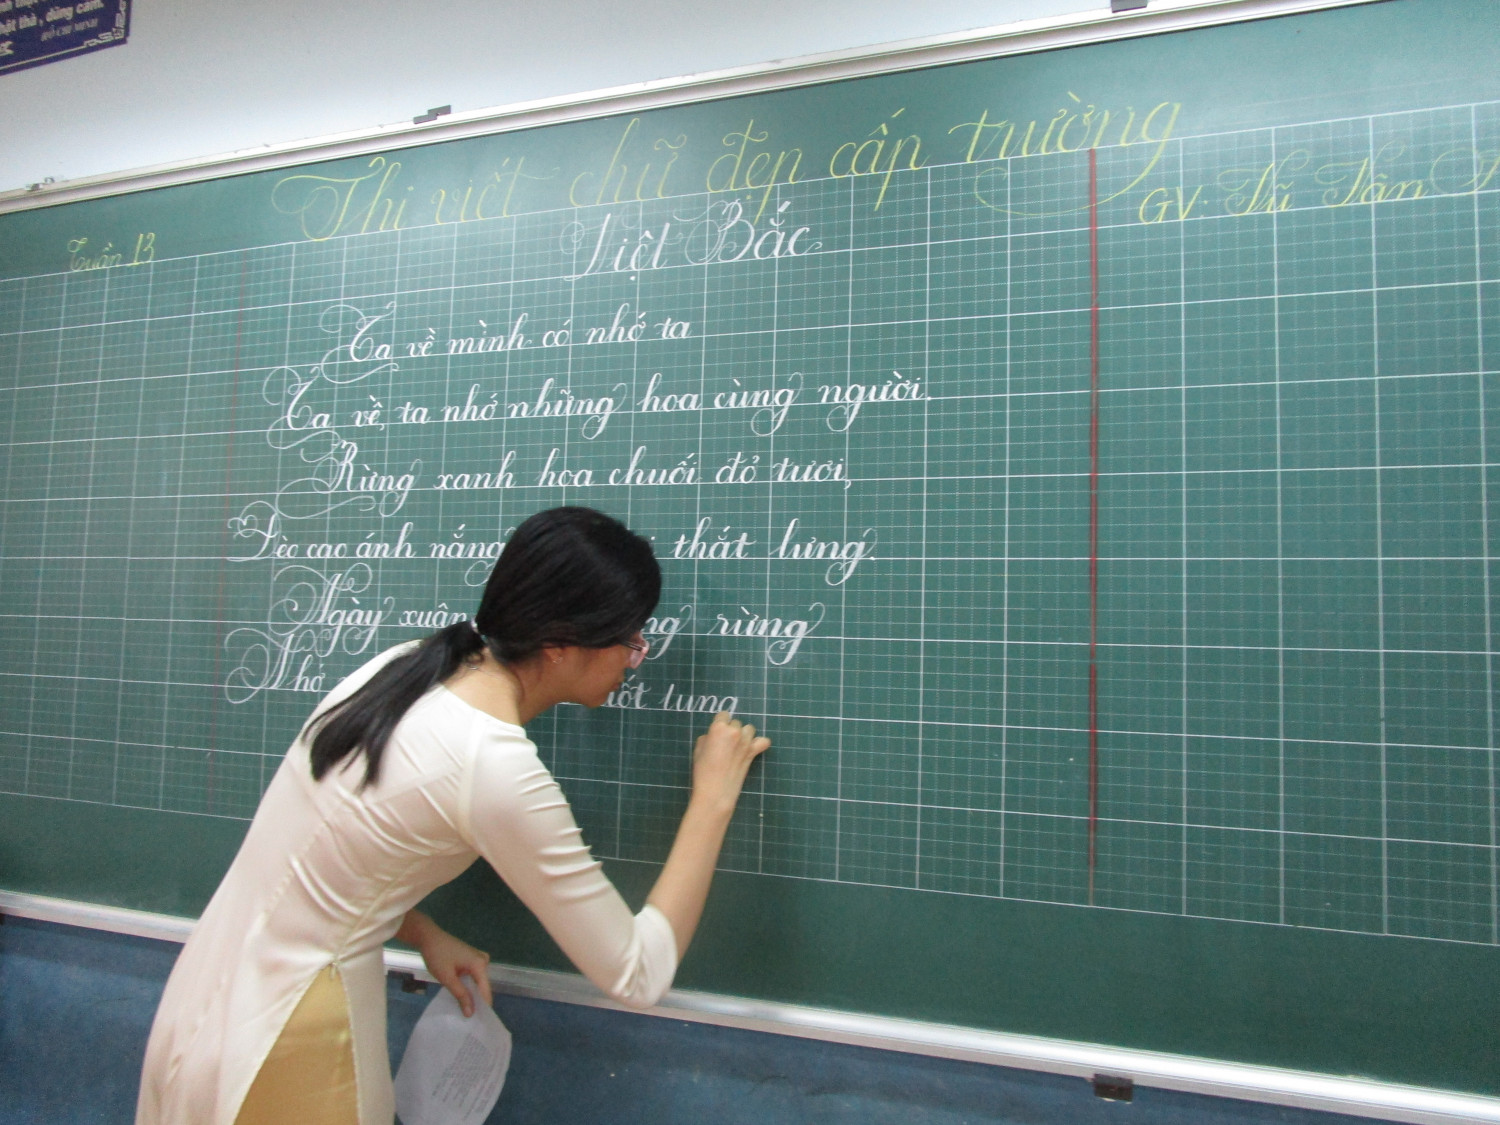 dũng cảm.
HỒ CHÍ MINH
Thi viết chữ đẹp cấp trường
Tuần 13
GV: Vũ Tân
Việt Bắc
Ta về mình có nhớ ta
Ta về, ta nhớ những hoa cùng người.
Rừng xanh hoa chuối đỏ tươi,
Đèo cao ánh nắng thắt lưng.
Ngày xuân rừng
Nhớ